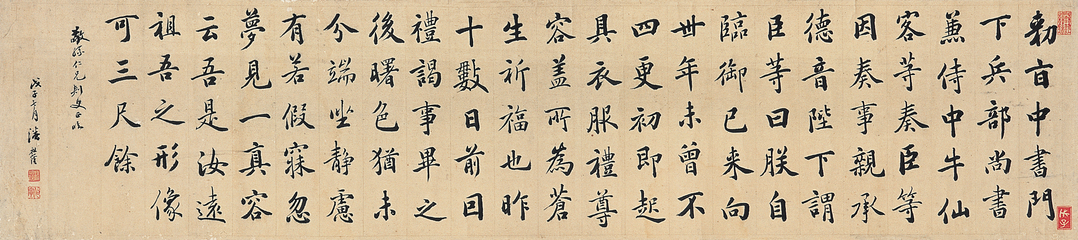 勅旨中書門
下兵部尚書
兼侍中牛仙
客等奏臣等
因奏事親承
德音陛下謂
臣等曰朕自
臨御已来向
丗年未曾不
四更初即起
具衣服禮尊
容盖所為蒼
生祈福也昨
十數日前因
禮謁事畢之
後曙色猶未
分端坐静慮
有若假寐忽
夢見一真容
云吾是汝遠
祖吾之形像
可三尺餘
仁兄刺史正
戊子七月